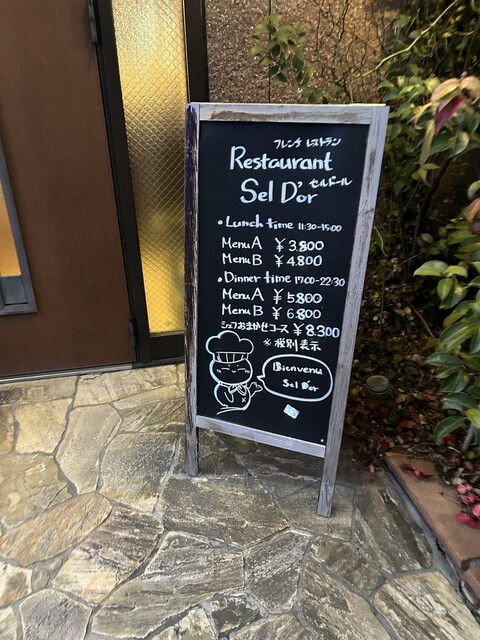 フレンチ レストラン
Restaurant
Sel D'or セルドール
• Lunch time 11:30-15:00
Menu A ¥3.800
Menu B ¥4.800
• Dinner time 17:00-22:30
Menu A ¥5.800
Menu B ¥6.800
シェフおまかせコース ¥8.300
※税別表示
Bienvenu
Sel D'or